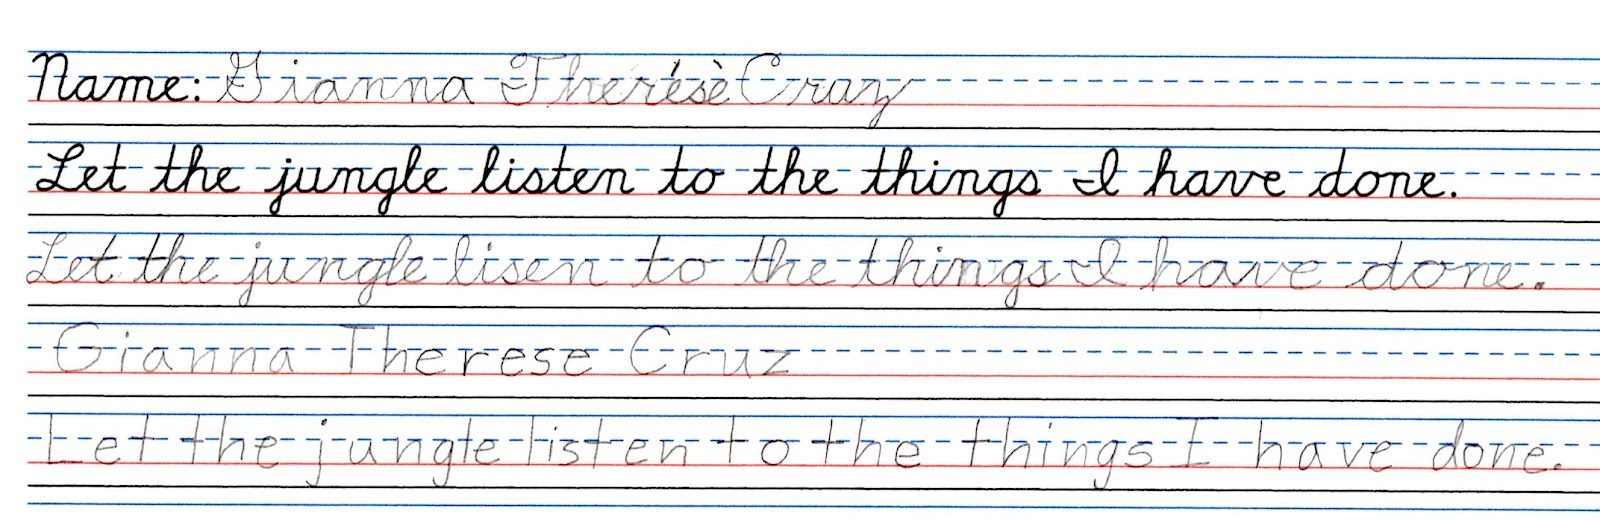 Name: Gianna Therésè Cruz
Let the jungle listen to the things I have done.
Let the jungle lisen to the things I have done.
Gianna Therese Cruz
Let the jungle listen to the things I have done.